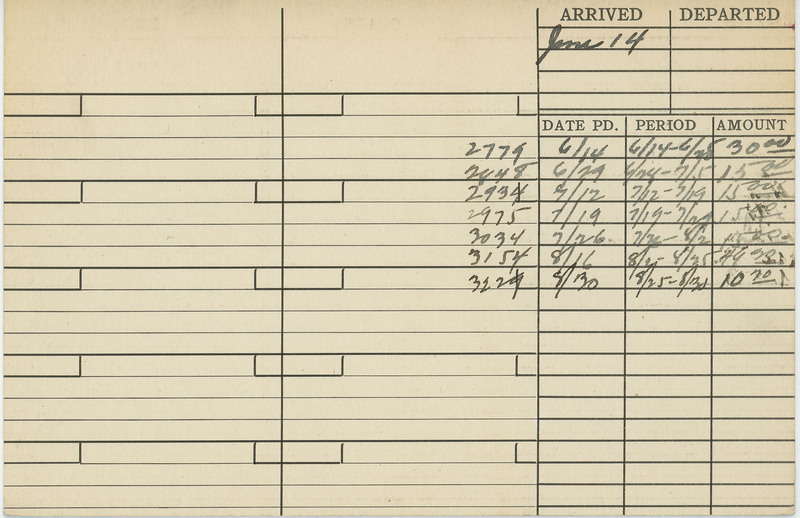 ARRIVED DEPARTED
June 14
DATE PD. PERIOD AMOUNT
2779 6/14 6/14-6/28 30 00
2648 6/29 7/5 15
2934 7/12 7/12-7/19 15 00
2975 7/19 7/19-7/26 15
3034 7/26 7/26-8/2
3154 8/16 8/2-8/25
3229 8/30 8/25-8/30 10 00